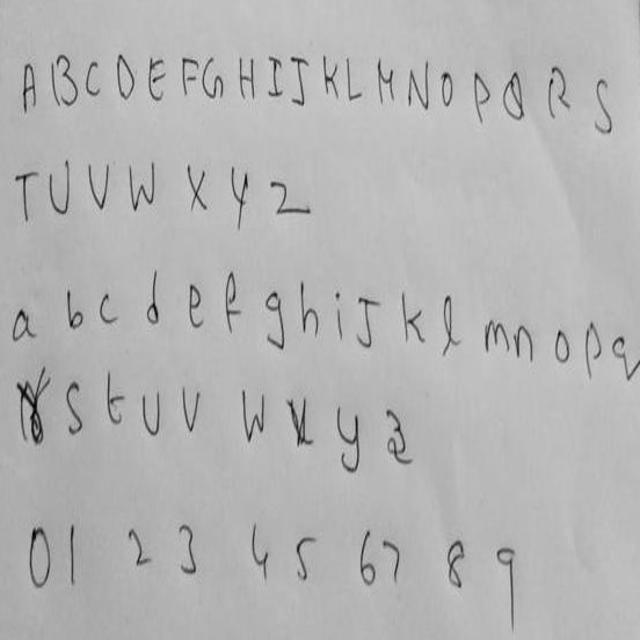 A B C D E F G H I J K L M N O P Q R S
T U V W X Y Z
a b c d e f g h i J k l m n o p q
r s t u v w x y z
0 1 2 3 4 5 6 7 8 9